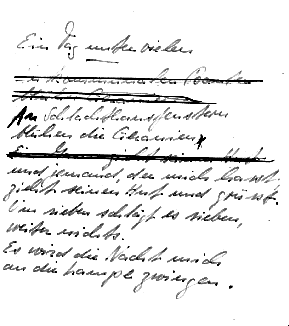 Ein Tag unter vielen
An Schlachthausfenstern
blühen die Geranien
und jemand, der mich hasst
zieht seinen Hut und grüsst.
Um sieben schlägt es sieben,
weiter nichts.
Es wird die Nacht mich
an die Lampe zwingen.